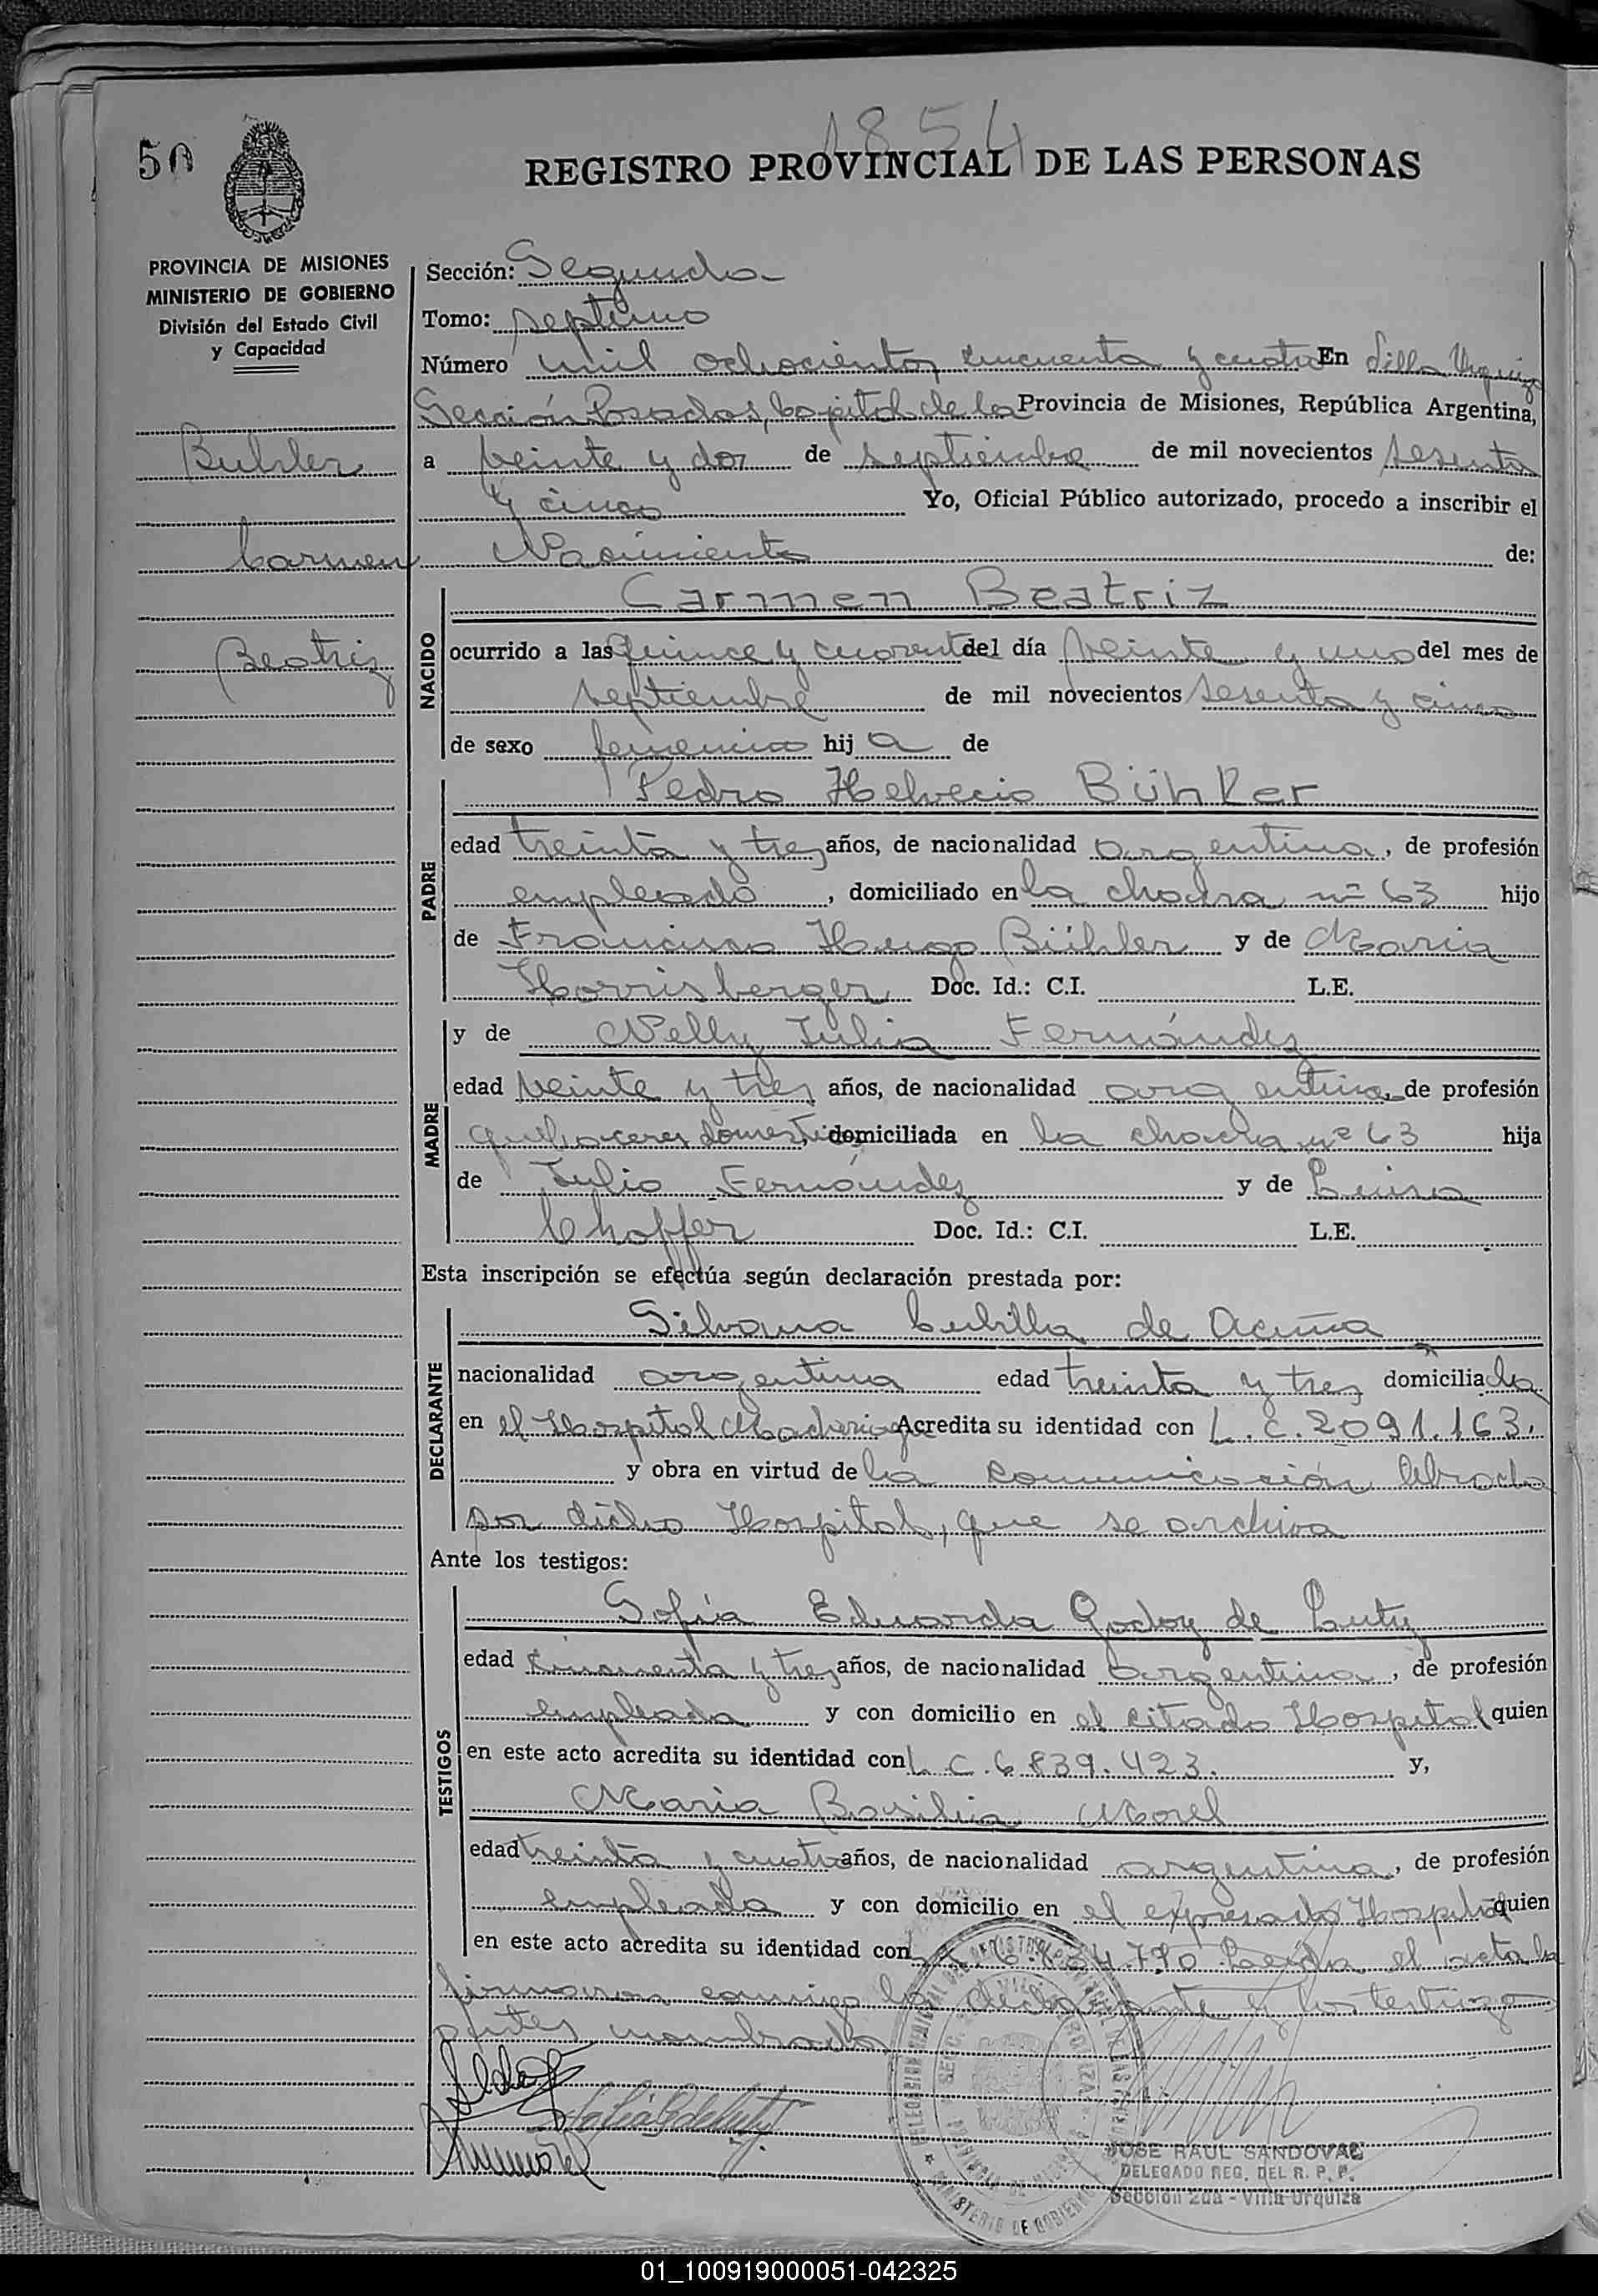 1854
50
REGISTRO PROVINCIAL DE LAS PERSONAS
PROVINCIA DE MISIONES
MINISTERIO DE GOBIERNO
División del Estado Civil
y Capacidad
Buhler
Carmen
Beatriz
Sección: Segunda
Tomo: septimo
Número mil ochocientos cincuenta y cuatro En Villa Urquiza
Sección Posadas, Capital de la Provincia de Misiones, República Argentina,
a veinte y dos de septiembre de mil novecientos sesenta
y cinco Yo, Oficial Público autorizado, procedo a inscribir el
Nacimiento de:
NACIDO
Carmen Beatriz
ocurrido a las quince y cuarenta del día veinte y uno del mes de
septiembre de mil novecientos sesenta y cinco
de sexo femenino hija de
PADRE
Pedro Helvecio Bühler
edad treinta y tres años, de nacionalidad argentina, de profesión
empleado, domiciliado en la chacra nº 63 hijo
de Francisco Hugo Bühler y de Maria
Horrisberger Doc. Id.: C.I. L.E.
MADRE
y de Nelly Julia Fernández
edad veinte y tres años, de nacionalidad argentina, de profesión
quehaceres domesticos, domiciliada en la chacra nº 63 hija
de Julio Fernández y de Luisa
Choffer Doc. Id.: C.I. L.E.
Esta inscripción se efectúa según declaración prestada por:
DECLARANTE
Silvana Cubilla de Acuña
nacionalidad argentina edad treinta y tres domiciliada
en el Hospital Madariaga Acredita su identidad con L.C. 2091.163.
y obra en virtud de la comunicación librada
por dicho Hospital, que se archiva
Ante los testigos:
TESTIGOS
Sofía Eduarda Godoy de Lutz
edad cincuenta y tres años, de nacionalidad argentina, de profesión
empleada y con domicilio en el citado Hospital quien
en este acto acredita su identidad con L.C. 6839.423. y,
Maria Basilia Morel
edad treinta y cuatro años, de nacionalidad argentina, de profesión
empleada y con domicilio en el expresado Hospital quien
en este acto acredita su identidad con Leida el acta la
firmaron conmigo la declarante y los testigos
antes nombrados
JOSE RAUL SANDOVAL
DELEGADO REG. DEL R. P. P.
Sección 2da - Villa Urquiza
01_100919000051-042325